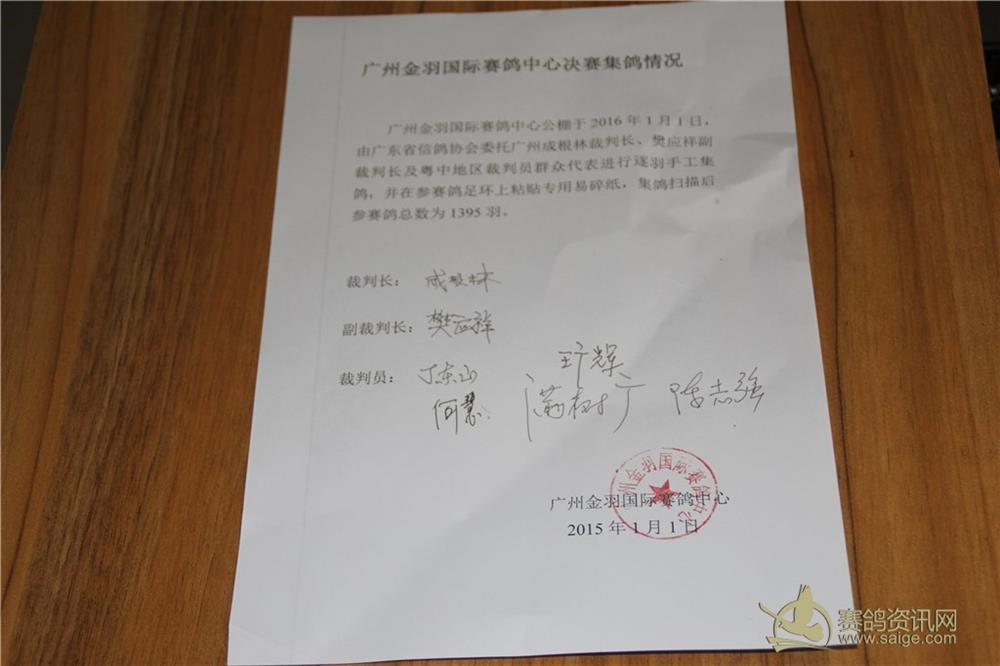 广州金羽国际赛鸽中心决赛集鸽情况
广州金羽国际赛鸽中心公棚于 2016 年 1 月 1 日，
由广东省信鸽协会委托广州成根林裁判长、樊应祥副
裁判长及粤中地区裁判员群众代表进行逐羽手工集
鸽，并在参赛鸽足环上粘贴专用易碎纸，集鸽扫描后
参赛鸽总数为 1395 羽。
裁判长： 成根林
副裁判长：樊应祥
裁判员： 丁东山 王广辉
何慧 满树广 陈志强
广州金羽国际赛鸽中心
2015 年 1 月 1 日
广州金羽国际赛鸽中心
赛鸽资讯网
www.saige.com